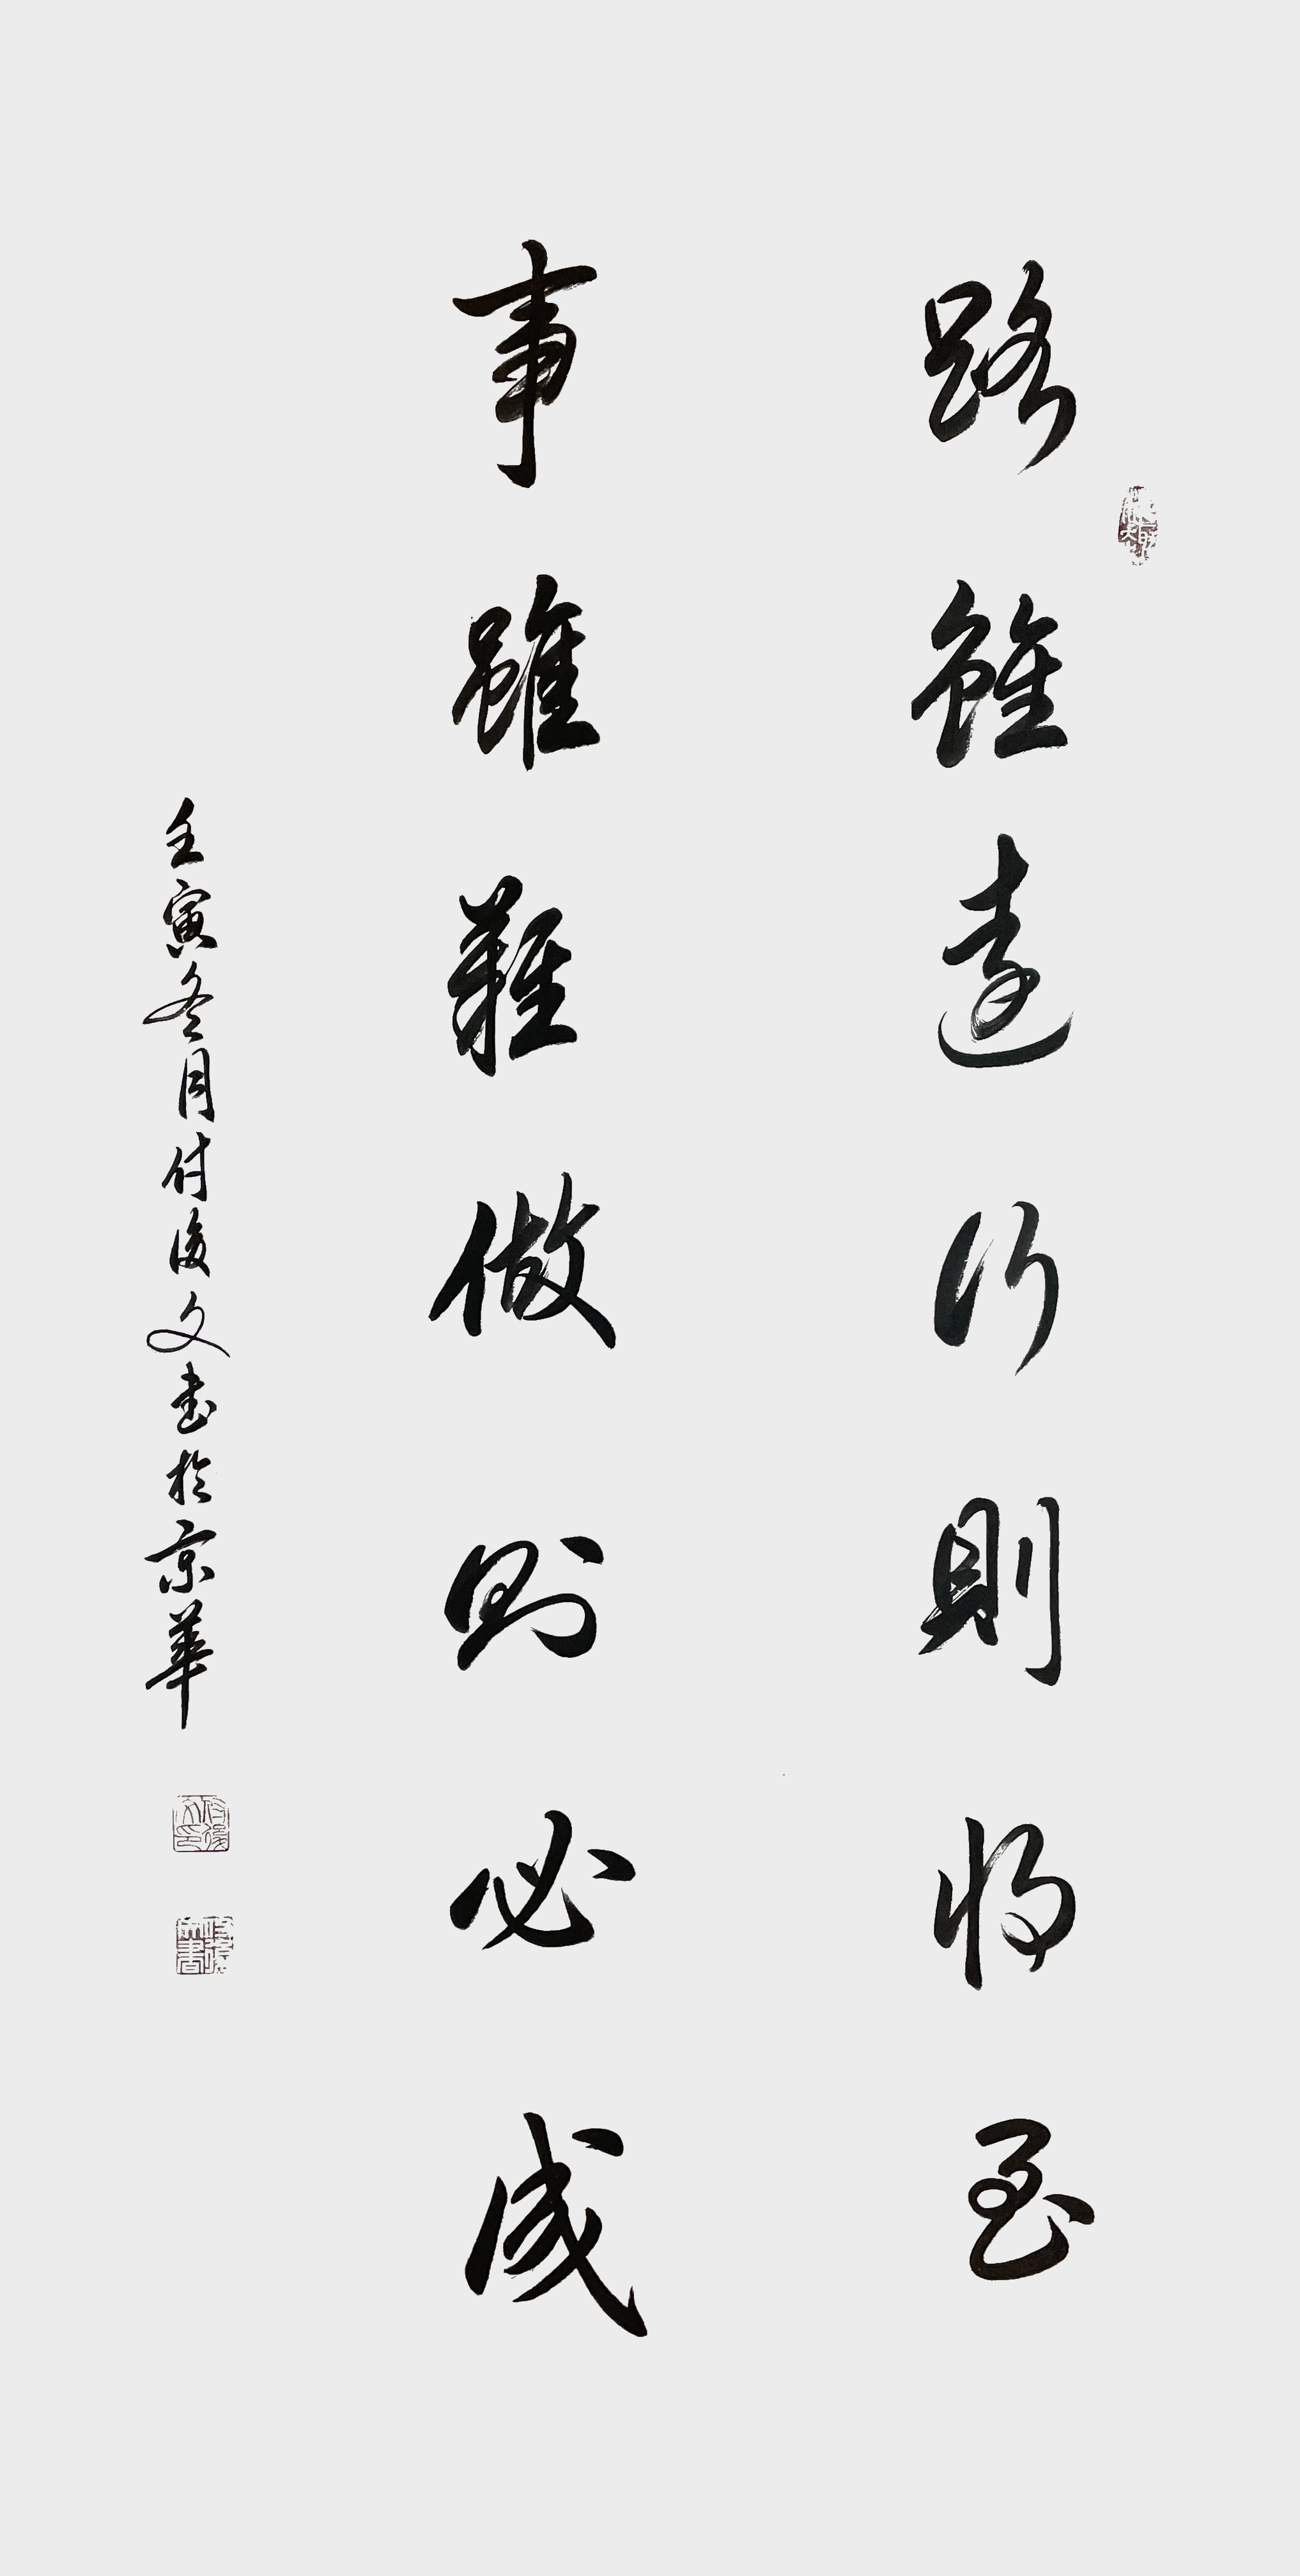 路雖遠行則將至
事雖難做則必成
壬寅冬月付後文書於京華